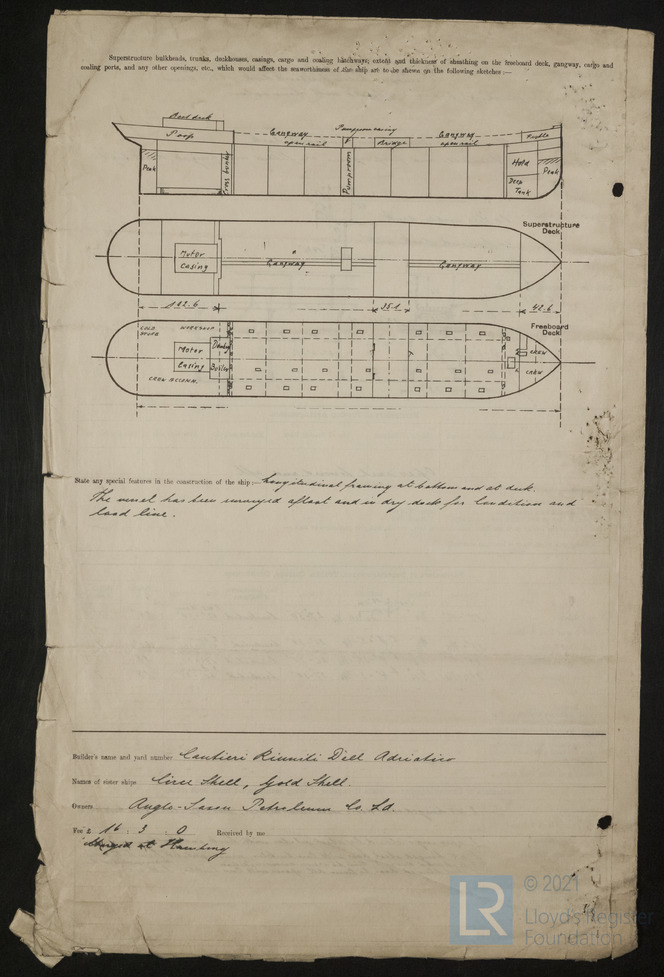 Superstructure bulkheads, trunks, deckhouses, casings, cargo and coaling hatchways; extent and thickness of sheathing on the freeboard deck, gangway, cargo and
coaling ports, and any other openings, etc., which would affect the seaworthiness of the ship are to be shewn on the following sketches :—
Boat deck
Poop
Gangway
open rail
Pumproom casing
Bridge
Gangway
open rail
Peak
Cross bunker
Pumproom
Hold
Deep
Tank
Peak
Superstructure
Deck
Motor
Casing
Gangway
Gangway
102.6
35.1
42.6
Freeboard
Deck
COLD
STORE
WORKSHOP
Motor
Casing
Donkey
Boiler
CREW ACCOMN.
CREW
CREW
State any special features in the construction of the ship :— Longitudinal framing at bottom and at deck.
The vessel has been surveyed afloat and in dry dock for condition and
load line.
Builder's name and yard number Cantieri Riuniti Dell Adriatico
Names of sister ships Circe Shell, Gold Shell.
Owners Anglo-Saxon Petroleum Co. Ld.
Fee £ 16 : 3 : 0 Received by me
at Hamburg
LR
© 2021
Lloyd's Register
Foundation